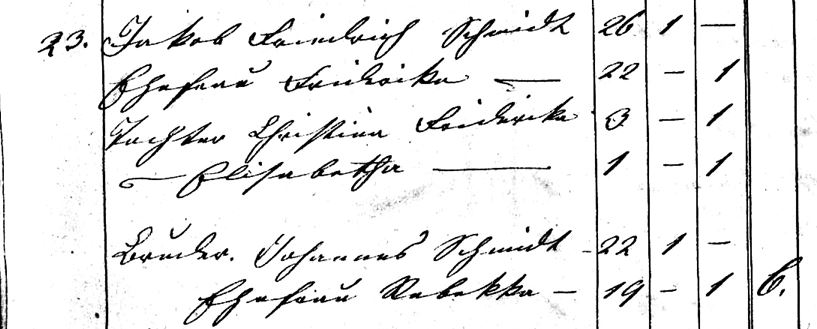 23. Jakob Friedrich Schmidt 26 1 —
Ehefrau Fridrika — 22 — 1
Tochter Christina Friderika 3 — 1
— Elisabetha — 1 — 1
Bruder. Johannes Schmidt - 22 1 —
Ehefrau Rebekka — 19 — 1 6.